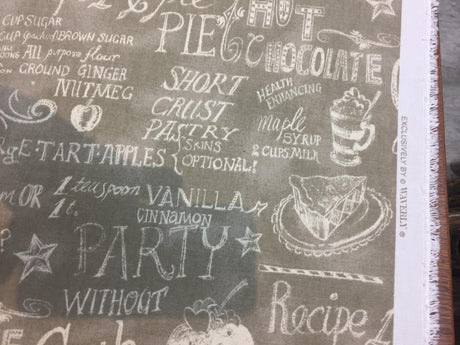 PIE
HOT
CHOCOLATE
CUP SUGAR
CUP packed BROWN SUGAR
All purpose flour
GROUND GINGER
NUTMEG
SHORT
CRUST
PASTRY
SKINS
OPTIONAL!
HEALTH
ENHANCING
maple
SYRUP
2 CUPS MILK
TART APPLES
OR 1 teaspoon VANILLA
1 t. CINNAMON
PARTY
WITHOUT
Recipe
EXCLUSIVELY BY © WAVERLY ®